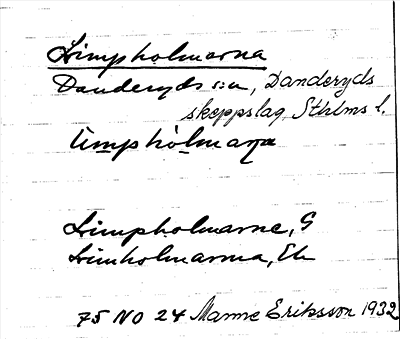 Limpholmarna
Danderyds s:n, Danderyds
skeppslag, Sthlms l.
Limpholmarne, G
Limholmarna, Ek
75 NO 24 Manne Eriksson 1932